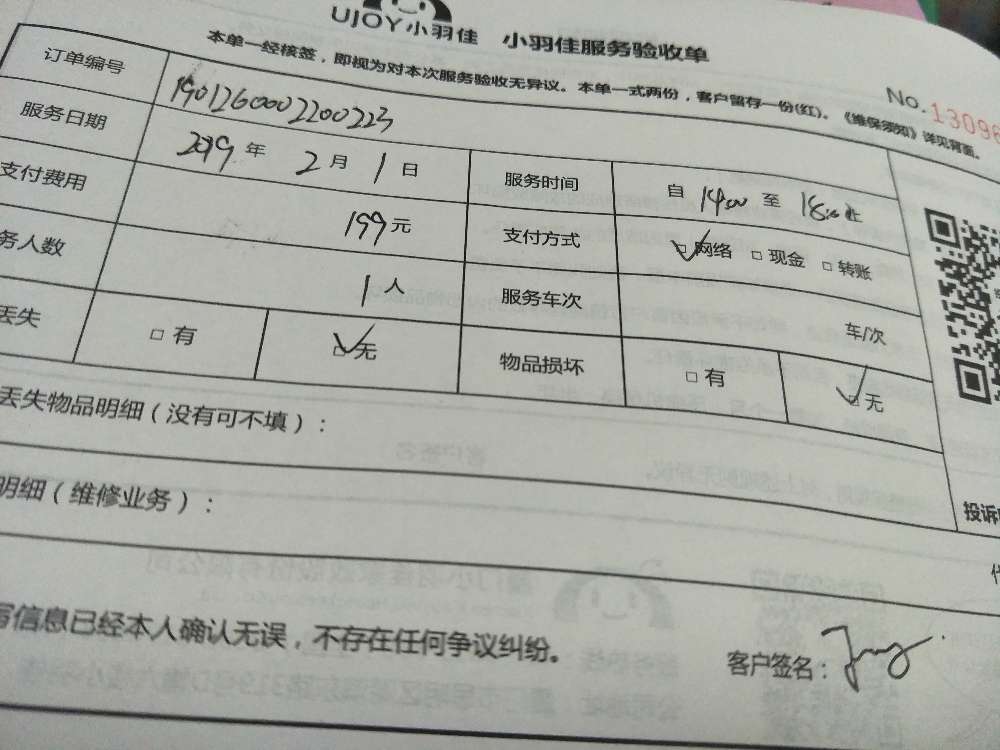 UJOY小羽佳 小羽佳服务验收单
本单一经核签，即视为对本次服务验收无异议。本单一式两份，客户留存一份(红)。《维保须知》详见背面。
No.13096
订单编号 1901260002200223
服务日期 2019 年 2 月 1 日 服务时间 自 14:00 至 18:00 止
支付费用 199 元 支付方式 网络 现金 转账
务人数 1 人 服务车次 车/次
丢失 有 无 物品损坏 有 无
丢失物品明细（没有可不填）：
明细（维修业务）：
投诉
写信息已经本人确认无误，不存在任何争议纠纷。
客户签名：